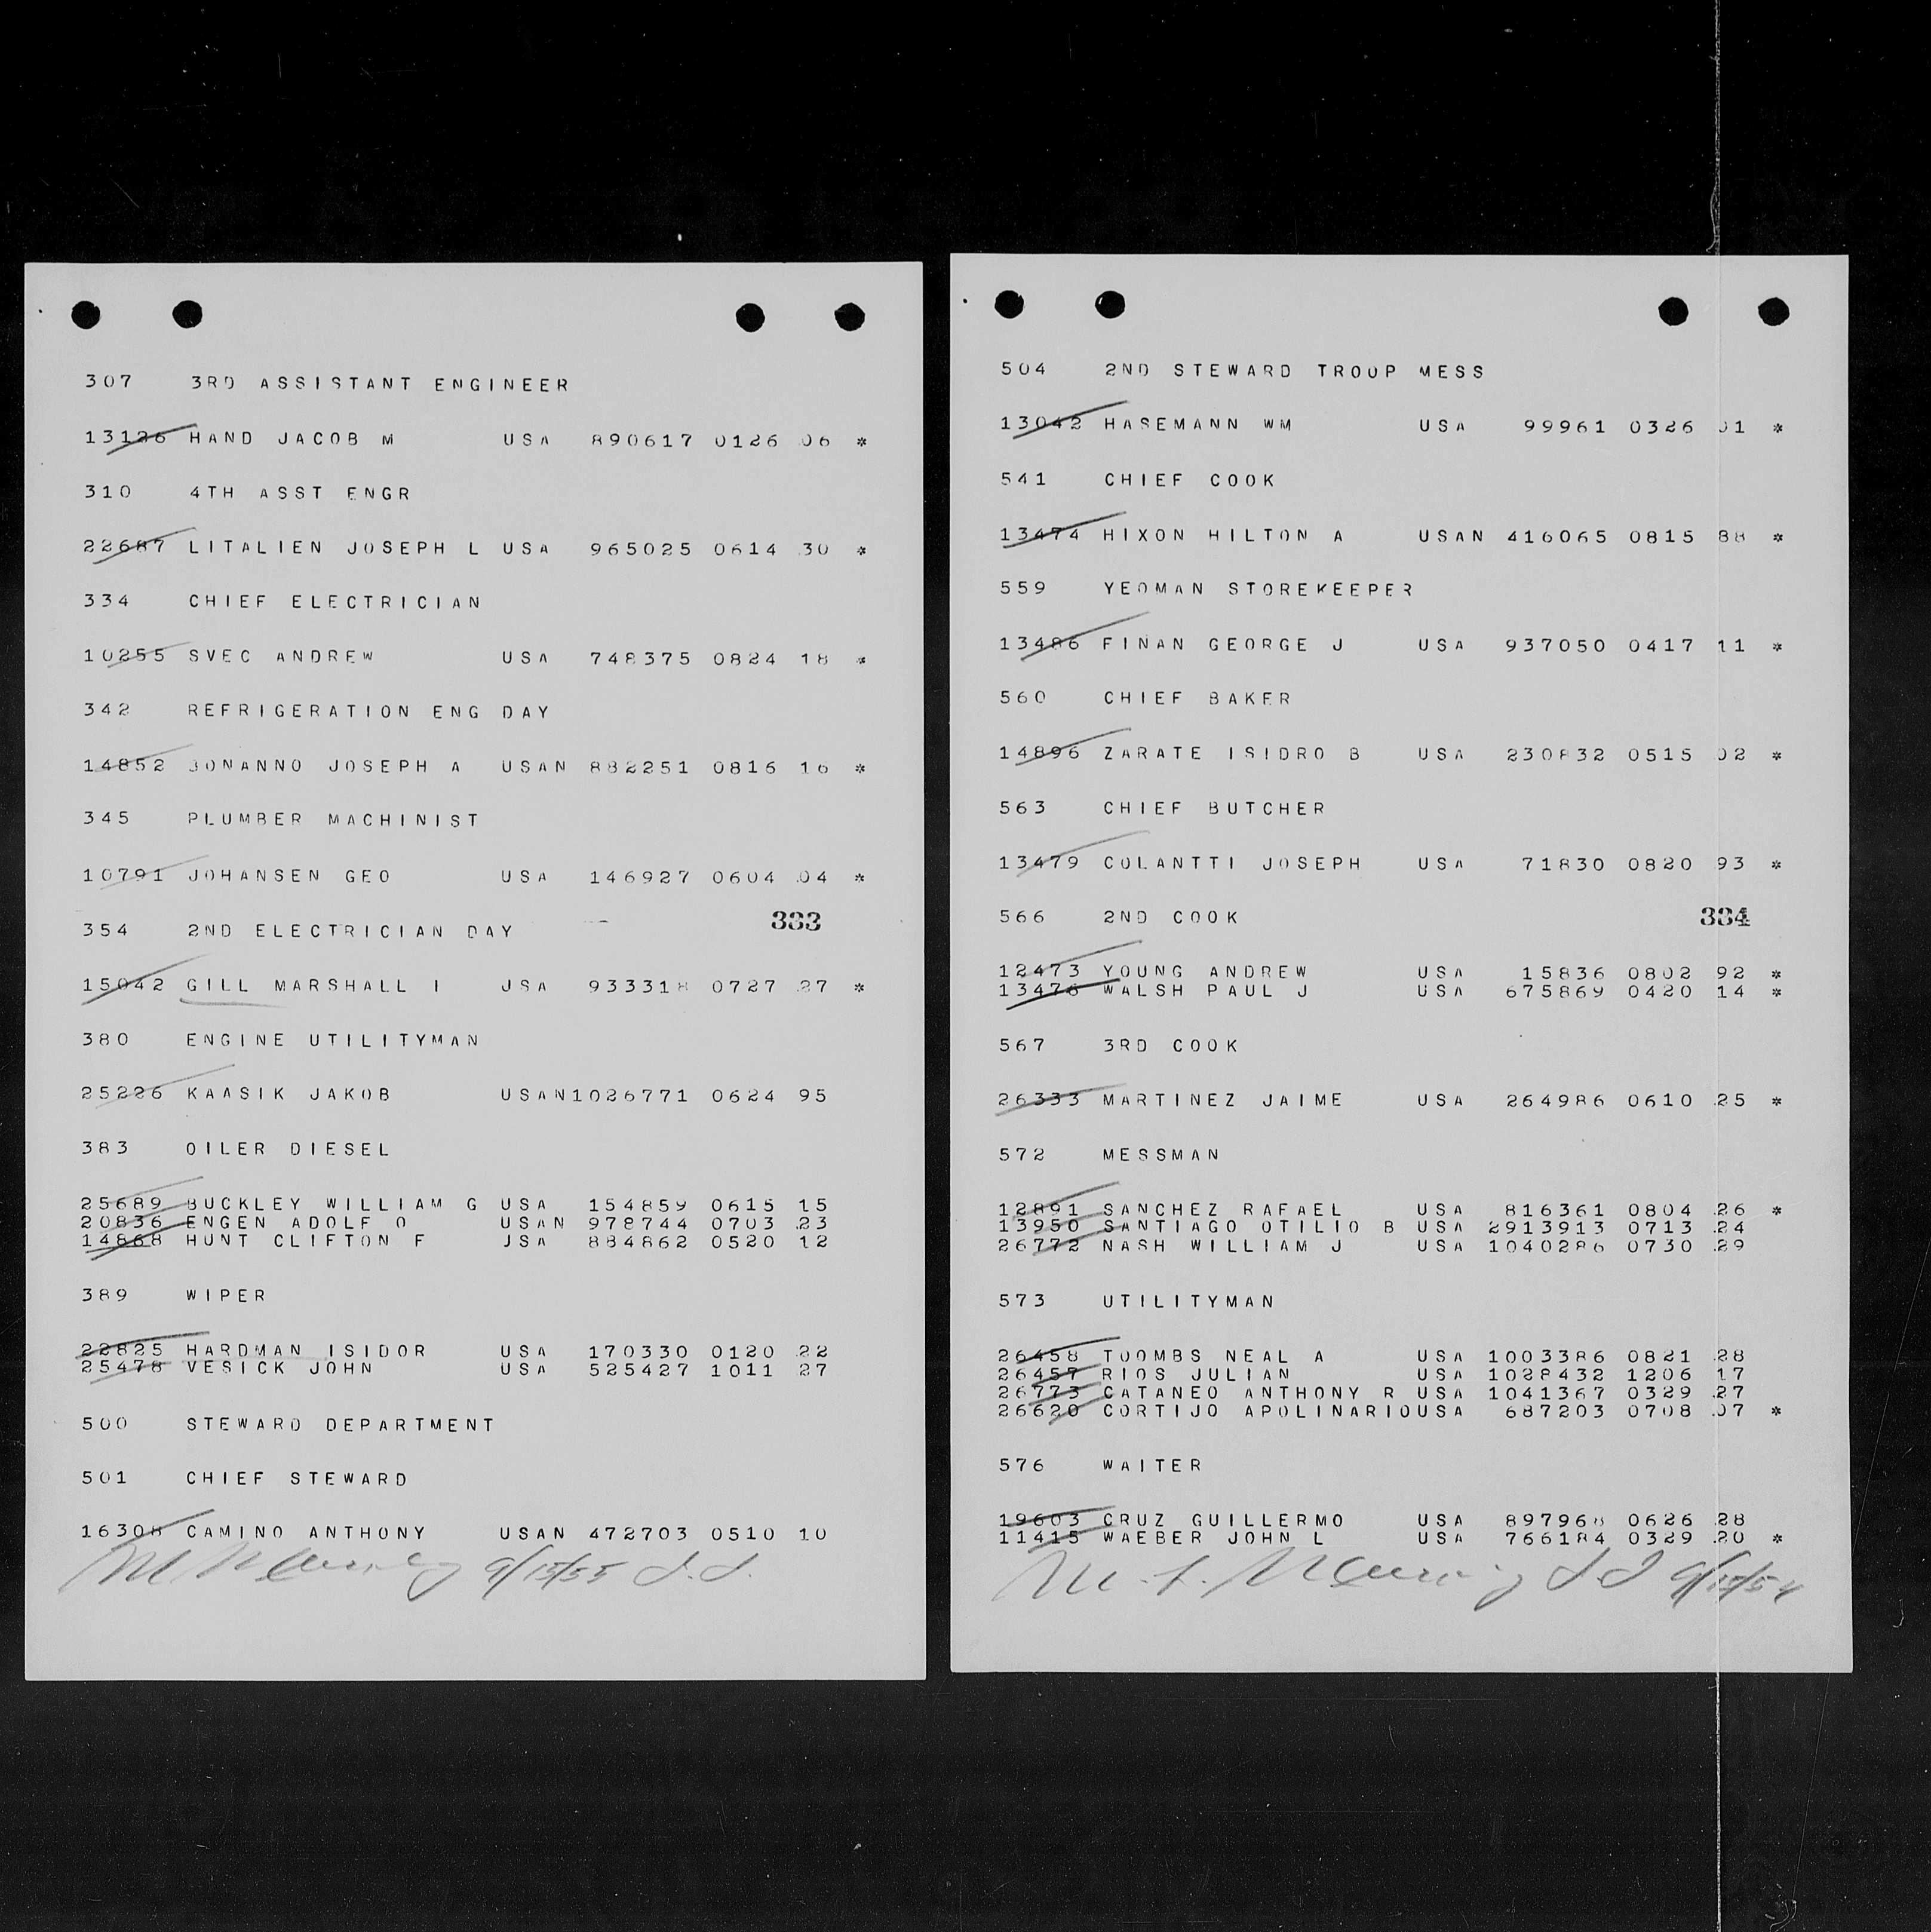 307 3RD ASSISTANT ENGINEER
13126 HAND JACOB M USA 890617 0126 06 *
310 4TH ASST ENGR
22687 LITALIEN JOSEPH L USA 965025 0614 30 *
334 CHIEF ELECTRICIAN
10255 SVEC ANDREW USA 748375 0824 18 *
342 REFRIGERATION ENG DAY
14852 BONANNO JOSEPH A USAN 882251 0816 16 *
345 PLUMBER MACHINIST
10791 JOHANSEN GEO USA 146927 0604 04 *
333
354 2ND ELECTRICIAN DAY
15042 GILL MARSHALL I USA 933318 0727 27 *
380 ENGINE UTILITYMAN
25226 KAASIK JAKOB USAN1026771 0624 95
383 OILER DIESEL
25689 BUCKLEY WILLIAM G USA 154859 0615 15
20836 ENGEN ADOLF O USAN 978744 0703 23
14868 HUNT CLIFTON F USA 884862 0520 12
389 WIPER
22825 HARDMAN ISIDOR USA 170330 0120 22
25478 VESICK JOHN USA 525427 1011 27
500 STEWARD DEPARTMENT
501 CHIEF STEWARD
16308 CAMINO ANTHONY USAN 472703 0510 10
9/15/55
504 2ND STEWARD TROOP MESS
13042 HASEMANN WM USA 99961 0326 01 *
541 CHIEF COOK
13474 HIXON HILTON A USAN 416065 0815 88 *
559 YEOMAN STOREKEEPER
13486 FINAN GEORGE J USA 937050 0417 11 *
560 CHIEF BAKER
14896 ZARATE ISIDRO B USA 230832 0515 02 *
563 CHIEF BUTCHER
13479 COLANTTI JOSEPH USA 71830 0820 93 *
566 2ND COOK 334
12473 YOUNG ANDREW USA 15836 0802 92 *
13476 WALSH PAUL J USA 675869 0420 14 *
567 3RD COOK
26333 MARTINEZ JAIME USA 264986 0610 25 *
572 MESSMAN
12891 SANCHEZ RAFAEL USA 816361 0804 26 *
13950 SANTIAGO OTILIO B USA 2913913 0713 24
26772 NASH WILLIAM J USA 1040286 0730 29
573 UTILITYMAN
26458 TOOMBS NEAL A USA 1003386 0821 28
26457 RIOS JULIAN USA 1028432 1206 17
26773 CATANEO ANTHONY R USA 1041367 0329 27
26620 CORTIJO APOLINARIOUSA 687203 0708 07 *
576 WAITER
19603 CRUZ GUILLERMO USA 897968 0626 28
11415 WAEBER JOHN L USA 766184 0329 20 *